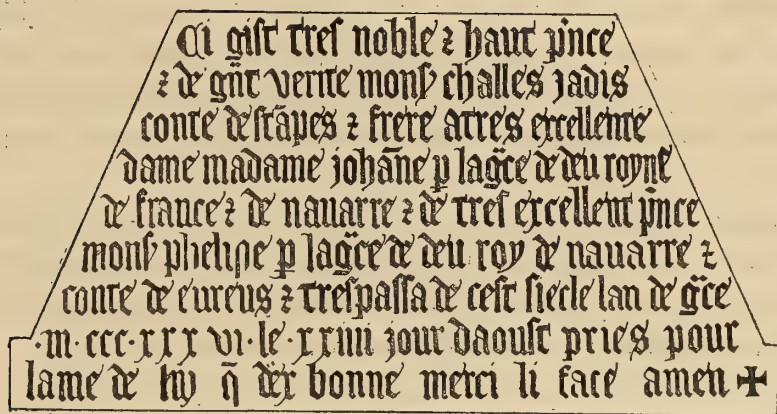 Ci gist tres noble ⁊ haut p̄nce
⁊ de gñt verite monſ challes jadis
conte destāpes ⁊ frere atres excellente
dame madame johāne p lagc̄e de deu royne
de france ⁊ de nauarre ⁊ de tres excellent p̄nce
monſ phelipe p lagc̄e de deu roy de nauarre ⁊
conte de eureus ⁊ trespassa de cest siecle lan de gc̄e
·m·ccc·xxx vi·le·xxiiii jour daoust pries pour
lame de luy q̄ dex bonne merci li face amen ✠